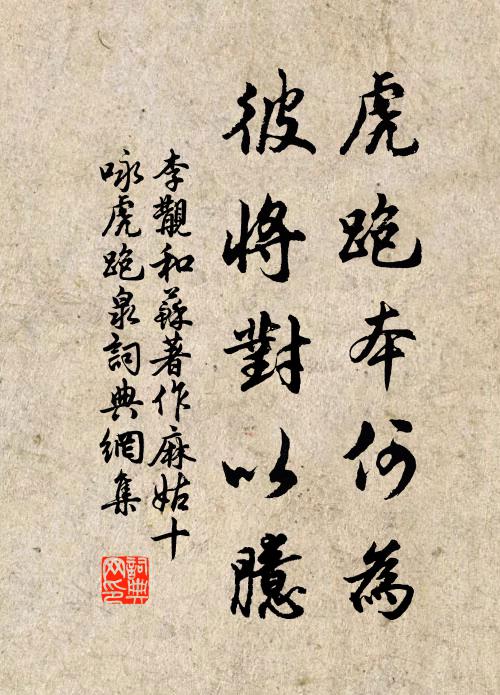 虎跑本何為
彼將對以臆
李觀和蘇著作麻姑十
咏虎跑泉詞典網集
詞典网印